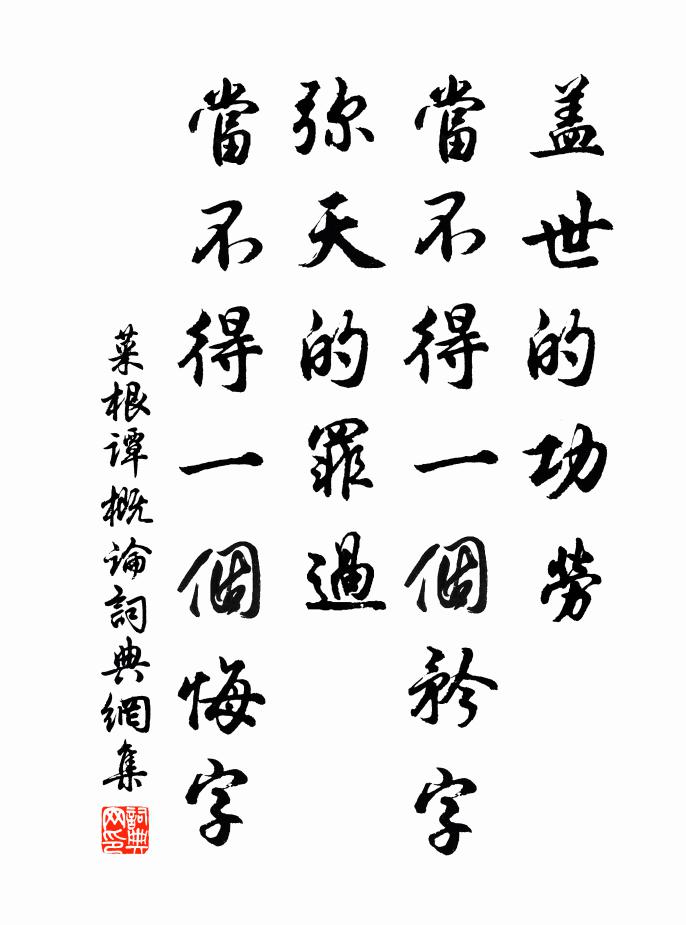 盖世的功勞
當不得一個矜字
弥天的罪過
當不得一個悔字
菜根谭概论詞典網集
詞典网印